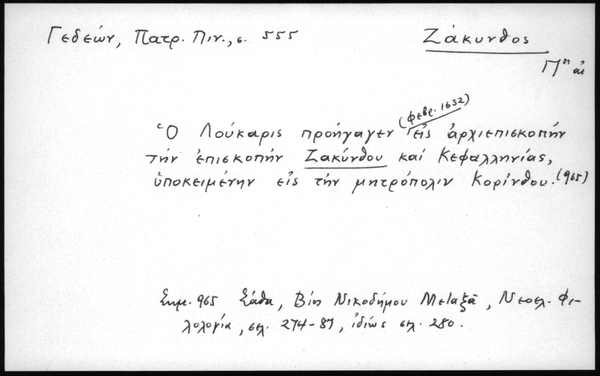 Γεδεών, Πατρ. Πιν., σ. 555
Ζάκυνθος
(φεβρ. 1632)
Ὁ Λούκαρις προήγαγεν εἰς ἀρχιεπισκοπήν
τήν ἐπισκοπήν Ζακύνθου καί Κεφαλληνίας,
ὑποκειμένην εἰς τήν μητρόπολιν Κορίνθου. (965)
Σημ. 965 Σάθα, Βίος Νικοδήμου Μεταξᾶ, Νεοελ. Φι-
λολογία, σελ. 274-87, ἰδίως σελ. 280.